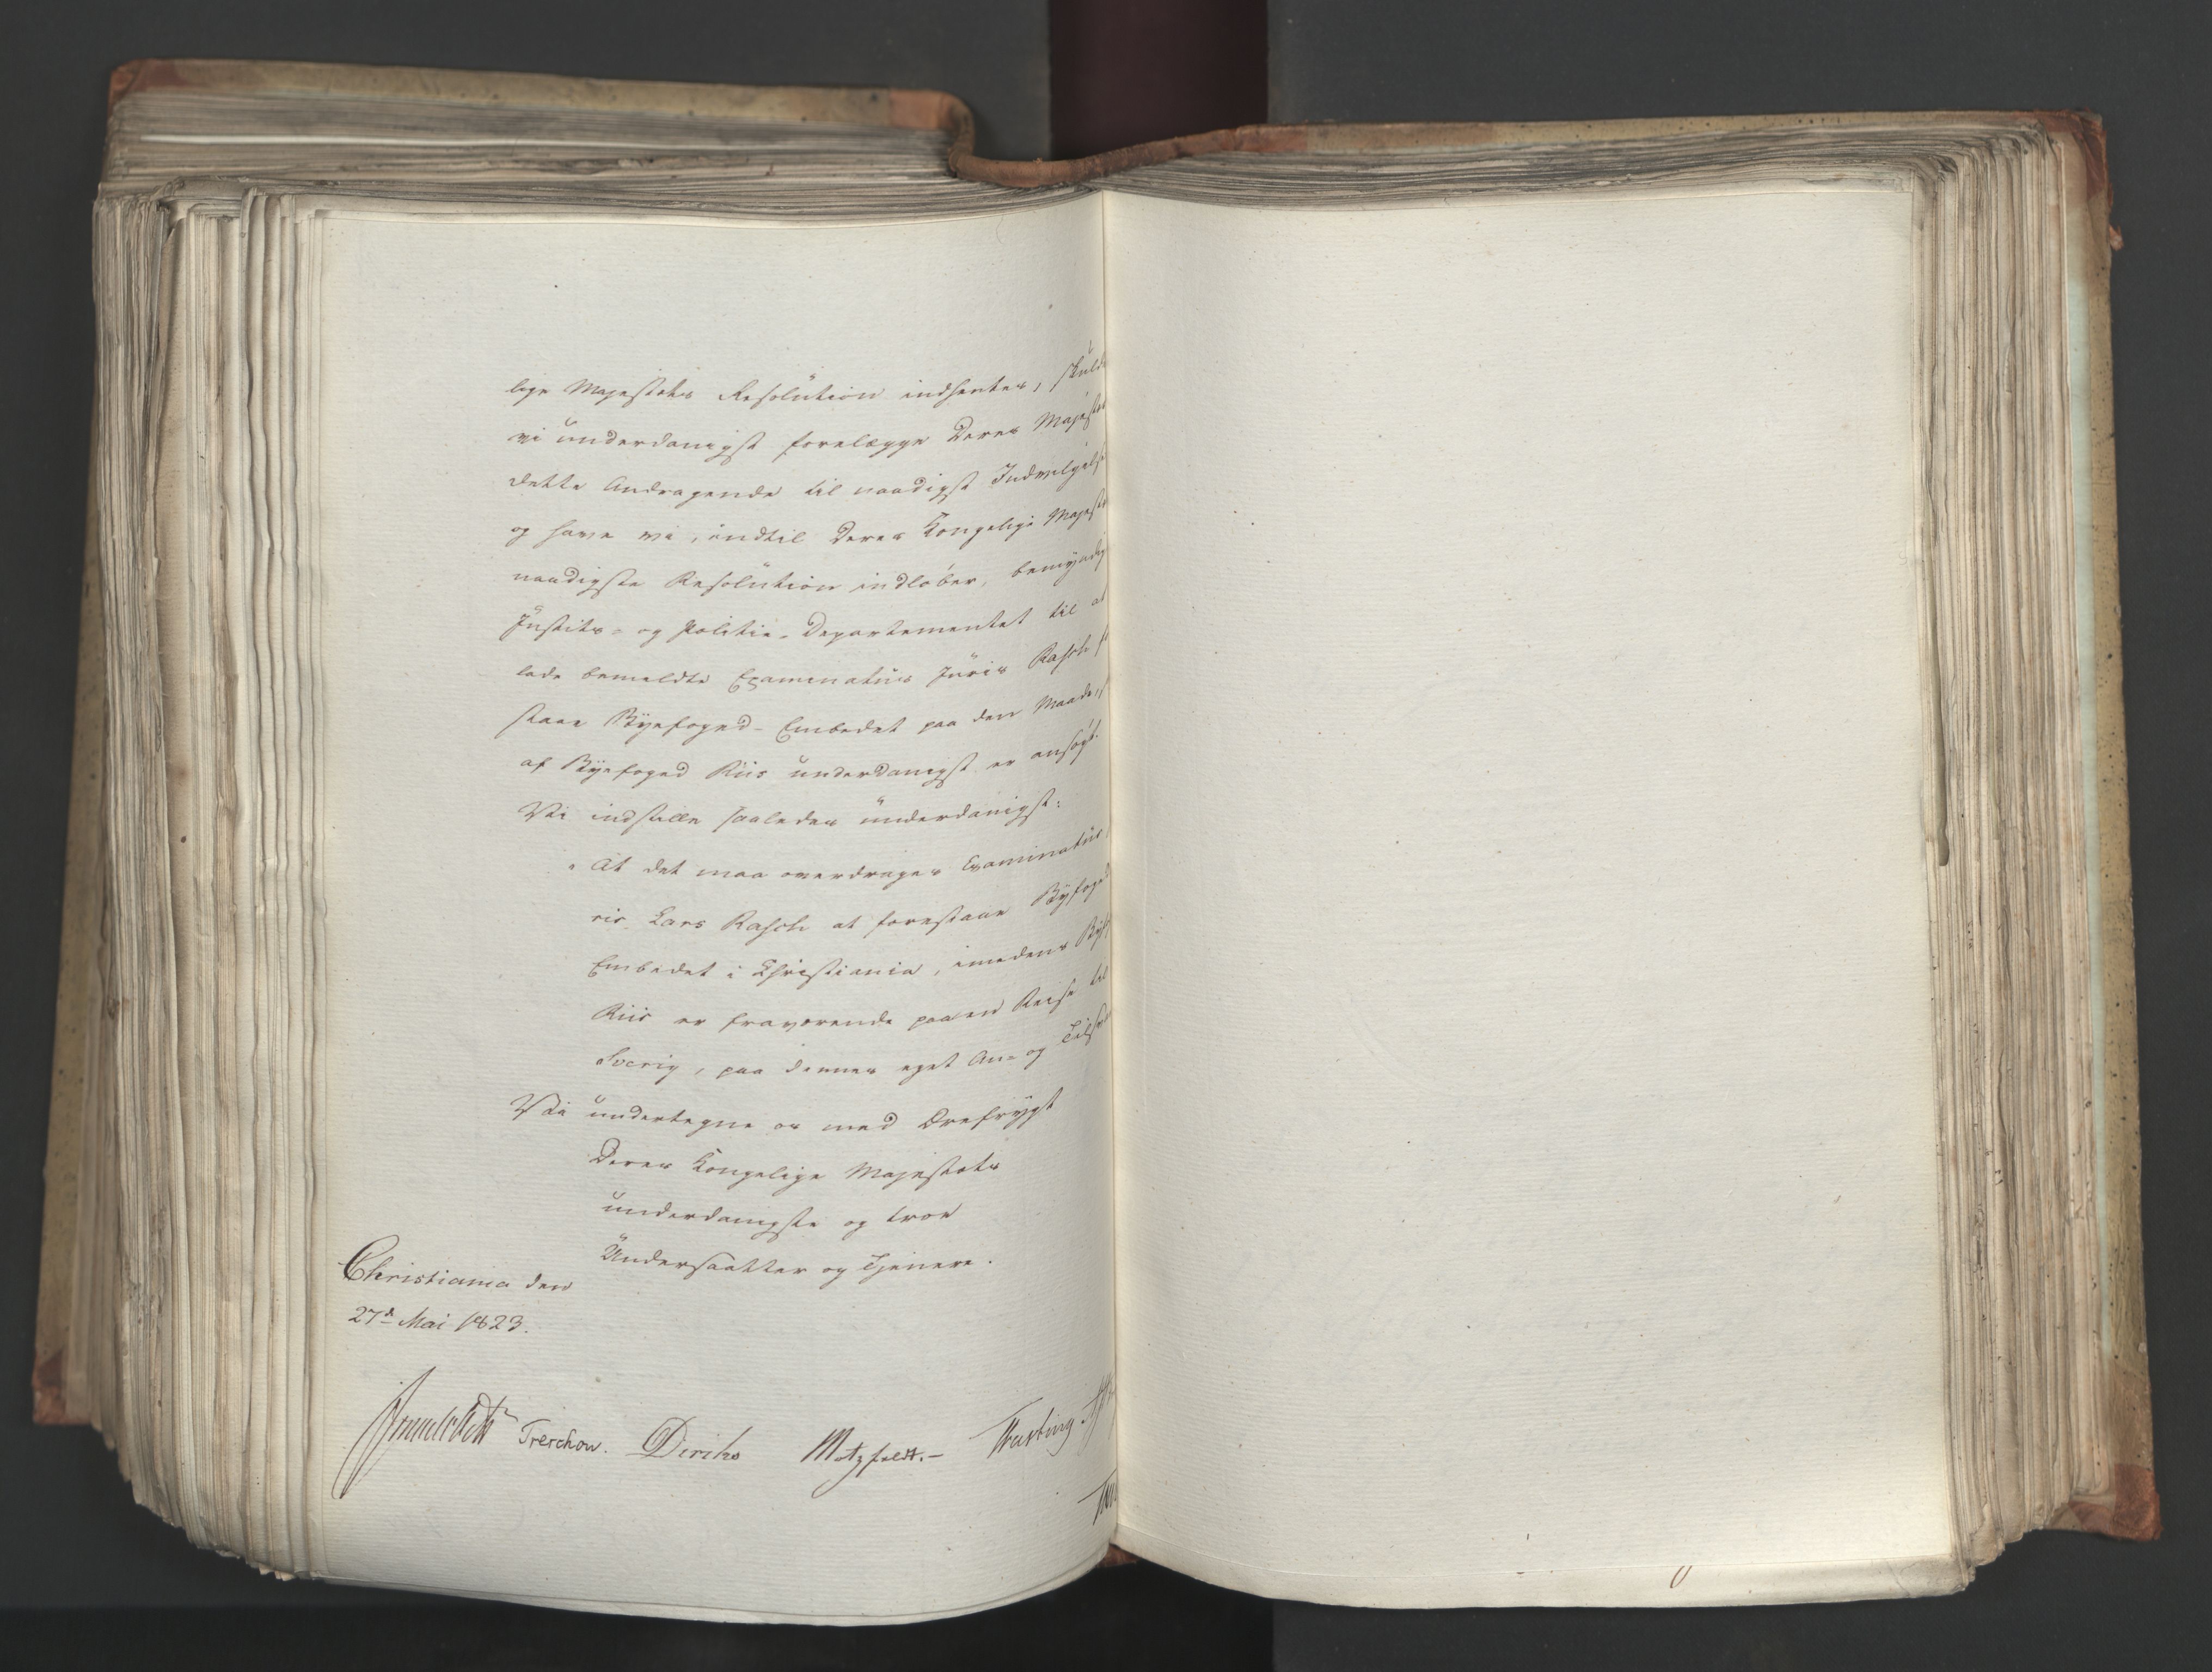 lige Majestæts Resolution indhentes, skulde
vi underdanigst forelægge Deres Majestæt
dette Andragende til naadigst Indvilgelse
og have vi, indtil Deres Kongelige Majestæts
naadigste Resolution indløber, bemyndig
Justits- og Politie-Departementet til at
lade bemeldte Examinatus Juris Rasch
staae Byefoged-Embedet paa den Maade,
af Byefoged Riis underdanigst er ansøgt.
Vi indstille saaledes underdanigst:
"At det maa overdrages Examinatus
ris Lars Rasch at forestaae Byfoged
Embedet i Christiania, imedens Byf
Riis er fraværende paa en Reise til
Sverig, paa dennes eget An- og Tilsv
Vi undertegne os med Ærefrygt
Deres Kongelige Majestæts
underdanigste og troe
Undersaatter og Tjenere.
Christiania den
27d Mai 1823.
Treschow. Diriks Motzfeldt.-